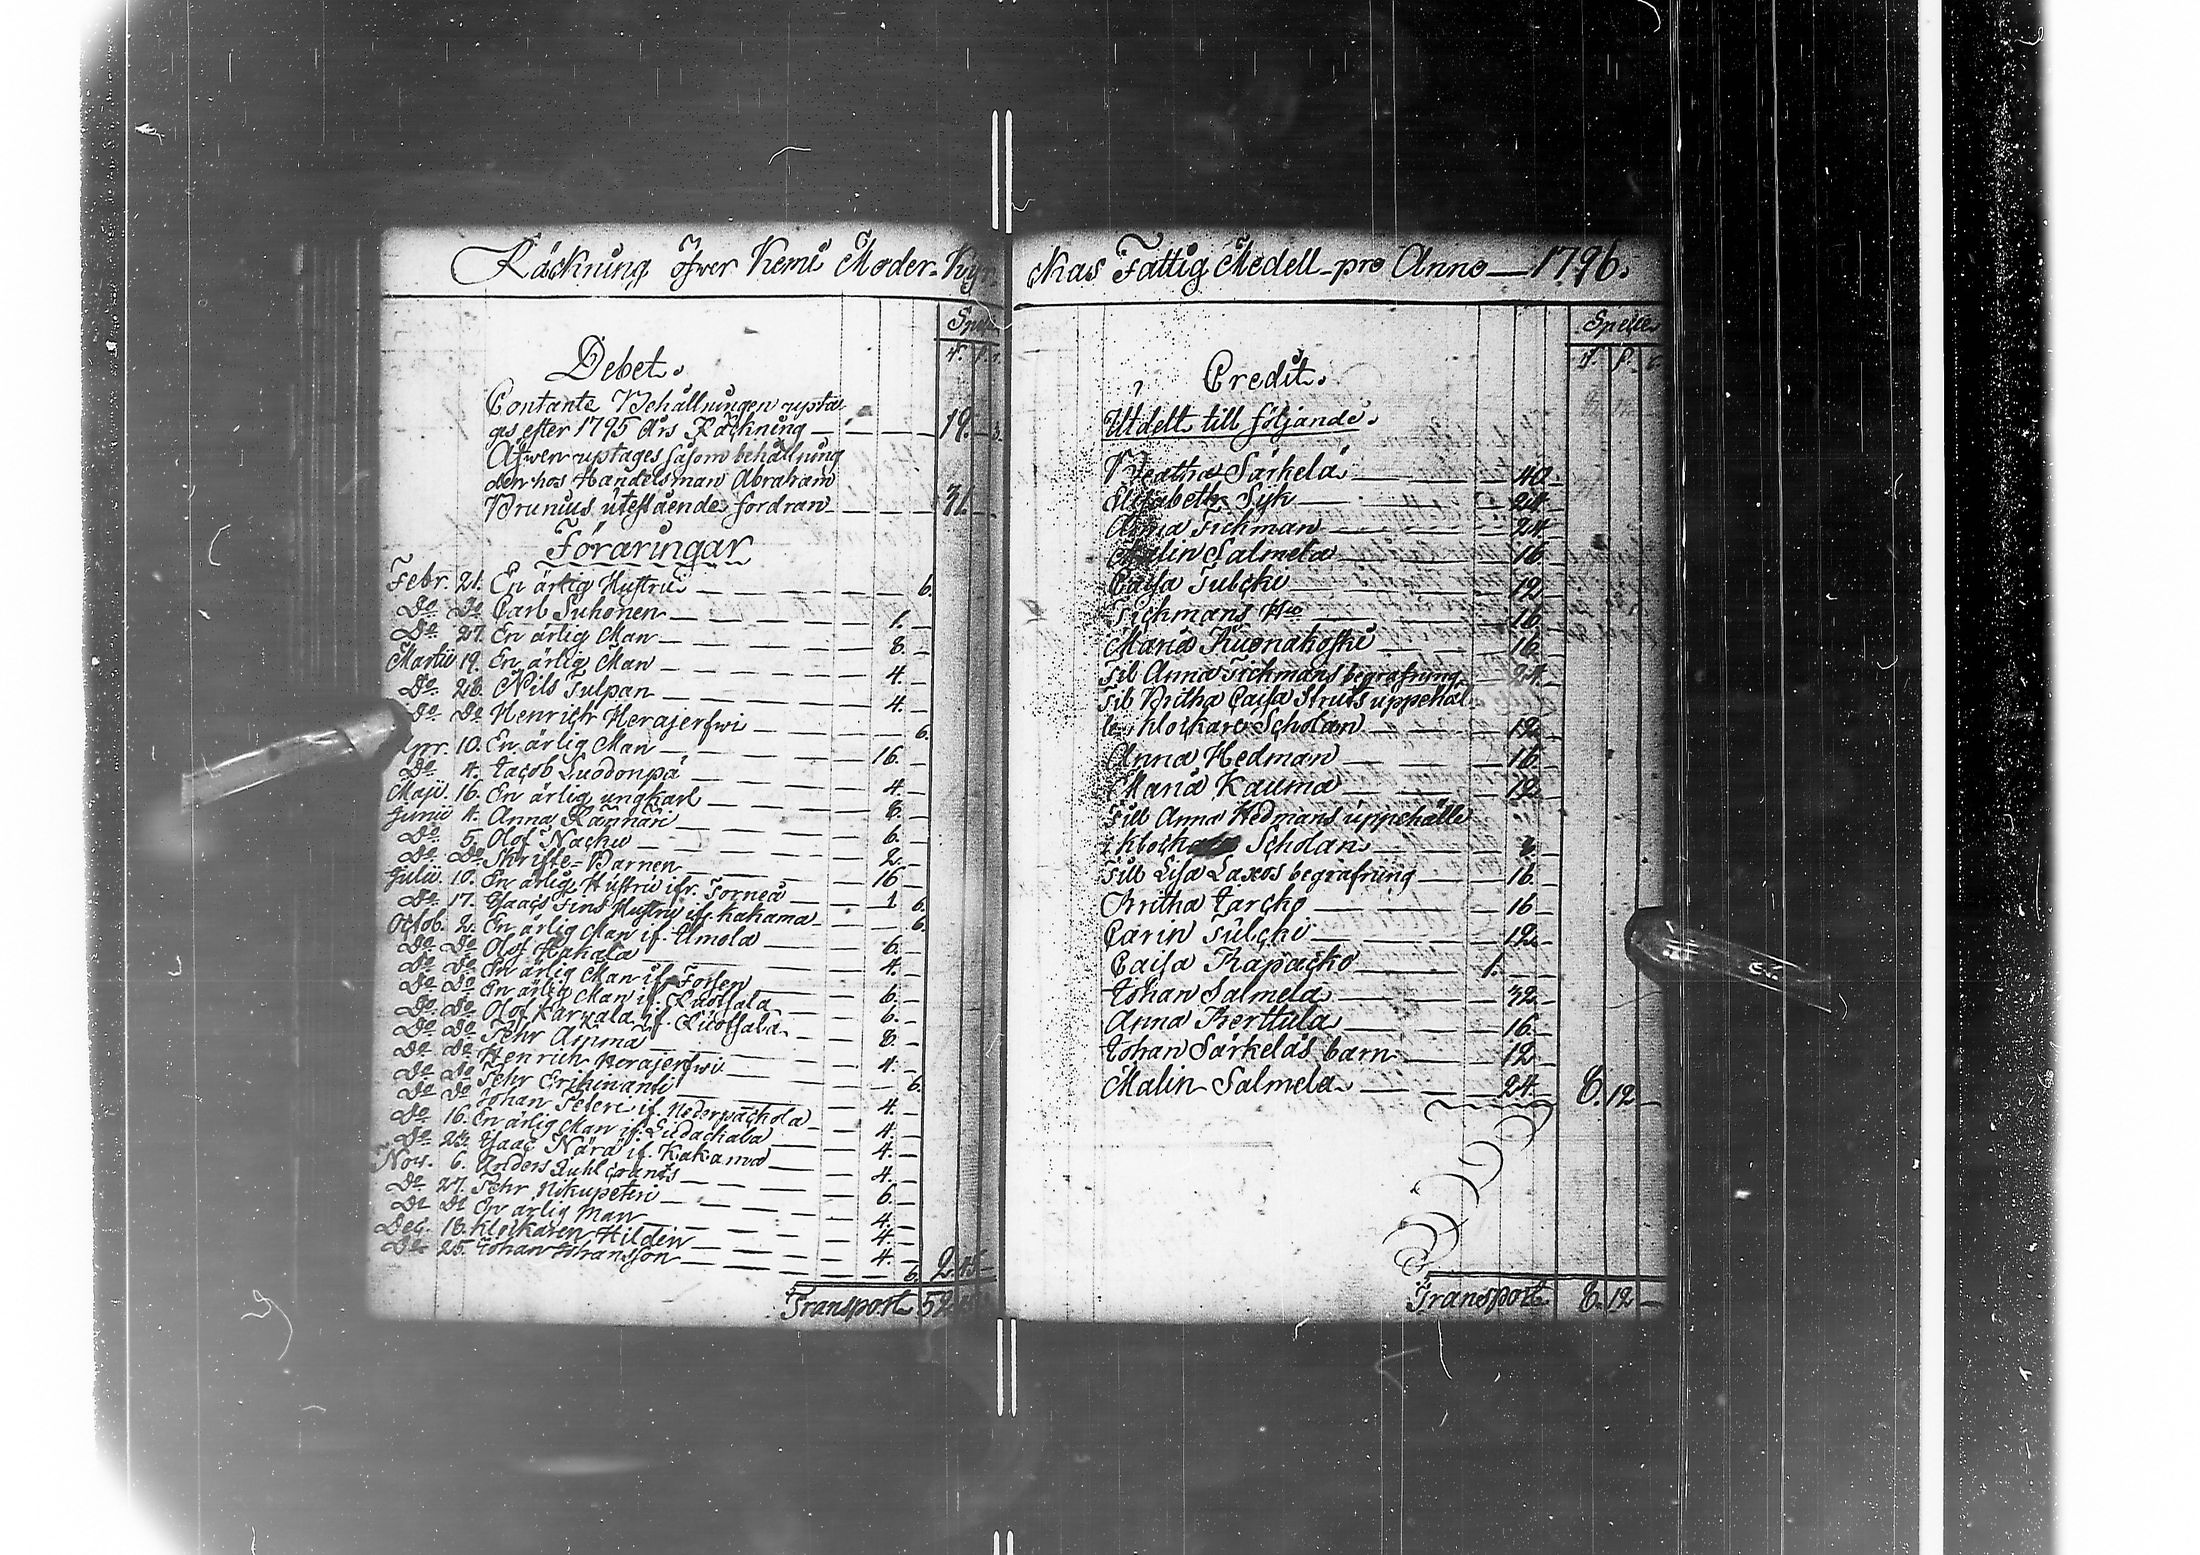 Räckning öfver Kemi Moder-Kyr
Debet.
Contante Behållningen upta
ges efter 1795 års Räckning — 19. — 3.
Äfwen uptages såsom behållning
den hos Handelsman Abraham
Brunius utestående fordran — 31. —
Föräringar
Febr. 21. En ärlig Hustru — 6.
Do Do Carl Suhonen — 1. —
Do 27. En ärlig Man — 8. —
Martii 19. En ärlig Man — 4. —
Do 28. Nils Tulpan — 4. —
Do Do Henrich Herajerfwi — 6.
Apr. 10. En ärlig Man — 16. —
Do 4. Jacob Luodonpä — 4. —
Maji 16. En ärlig ungkarl — 8. —
Junii 4. Anna — 6. —
Do 5. Olof — 2. —
Do Do Skrifte-Barnen — 16 —
Julii 10. En ärlig Hustru ifr. Torneå — 1 6.
Do 17. Isaacs Hustru if. Kakama — 6.
Octob. 2. En ärlig Man if. Ulmola — 6. —
Do Do Olof Hakala — 4. —
Do Do En ärlig Man if. — 6. —
Do Do En ärlig Man if. — 6. —
Do Do Olof if. — 8. —
Do Do Pehr Arpma — 4. —
Do Do Henrich Herajerfwi — 6.
Do Do Pehr — 4. —
Do Do Johan if. — 4. —
Do 16. En ärlig Man if. — 4. —
Do 23. Isaac Närä if. Kakama — 4. —
Nov. 6. Anders — 6. —
Do 27. Pehr Nikupeteri — 4. —
Do Do En ärlig Man — 4. —
Dec. 18. Klockaren Hildén — 4. —
Do 25. Johan Johansson — 6. 2.
Transport
ckas Fattig Medell pro Anno — 1796.
Specie
Credit.
Utdelt till följande.
Beatha Särkelä — 40.
Elisabeth Syk — 24.
Anna Tichman — 24.
Malin Salmela — 16.
Caisa Tulcki — 12
Tichmans — 16.
Maria Kuonakoski — 16.
Til Anna Tichmans begrafning — 24. —
Til Britha Caisa Struts uppehäl
le i Klockare Scholan — 12
Anna Hedman — 16.
Maria Kauma — 12.
Till Anna Hedmans uppehälle
i Scholan —
Till Lisa Laxos begrafning — 16. —
Britha Jarcko — 16 —
Carin Tulcki — 12. —
Caisa Kapacko — 1. —
Johan Salmela — 32. —
Anna Kerttula — 16. —
Johan Särkeläs barn — 12
Malin Salmela — 24. 8. 12 —
Transport 8. 12 —